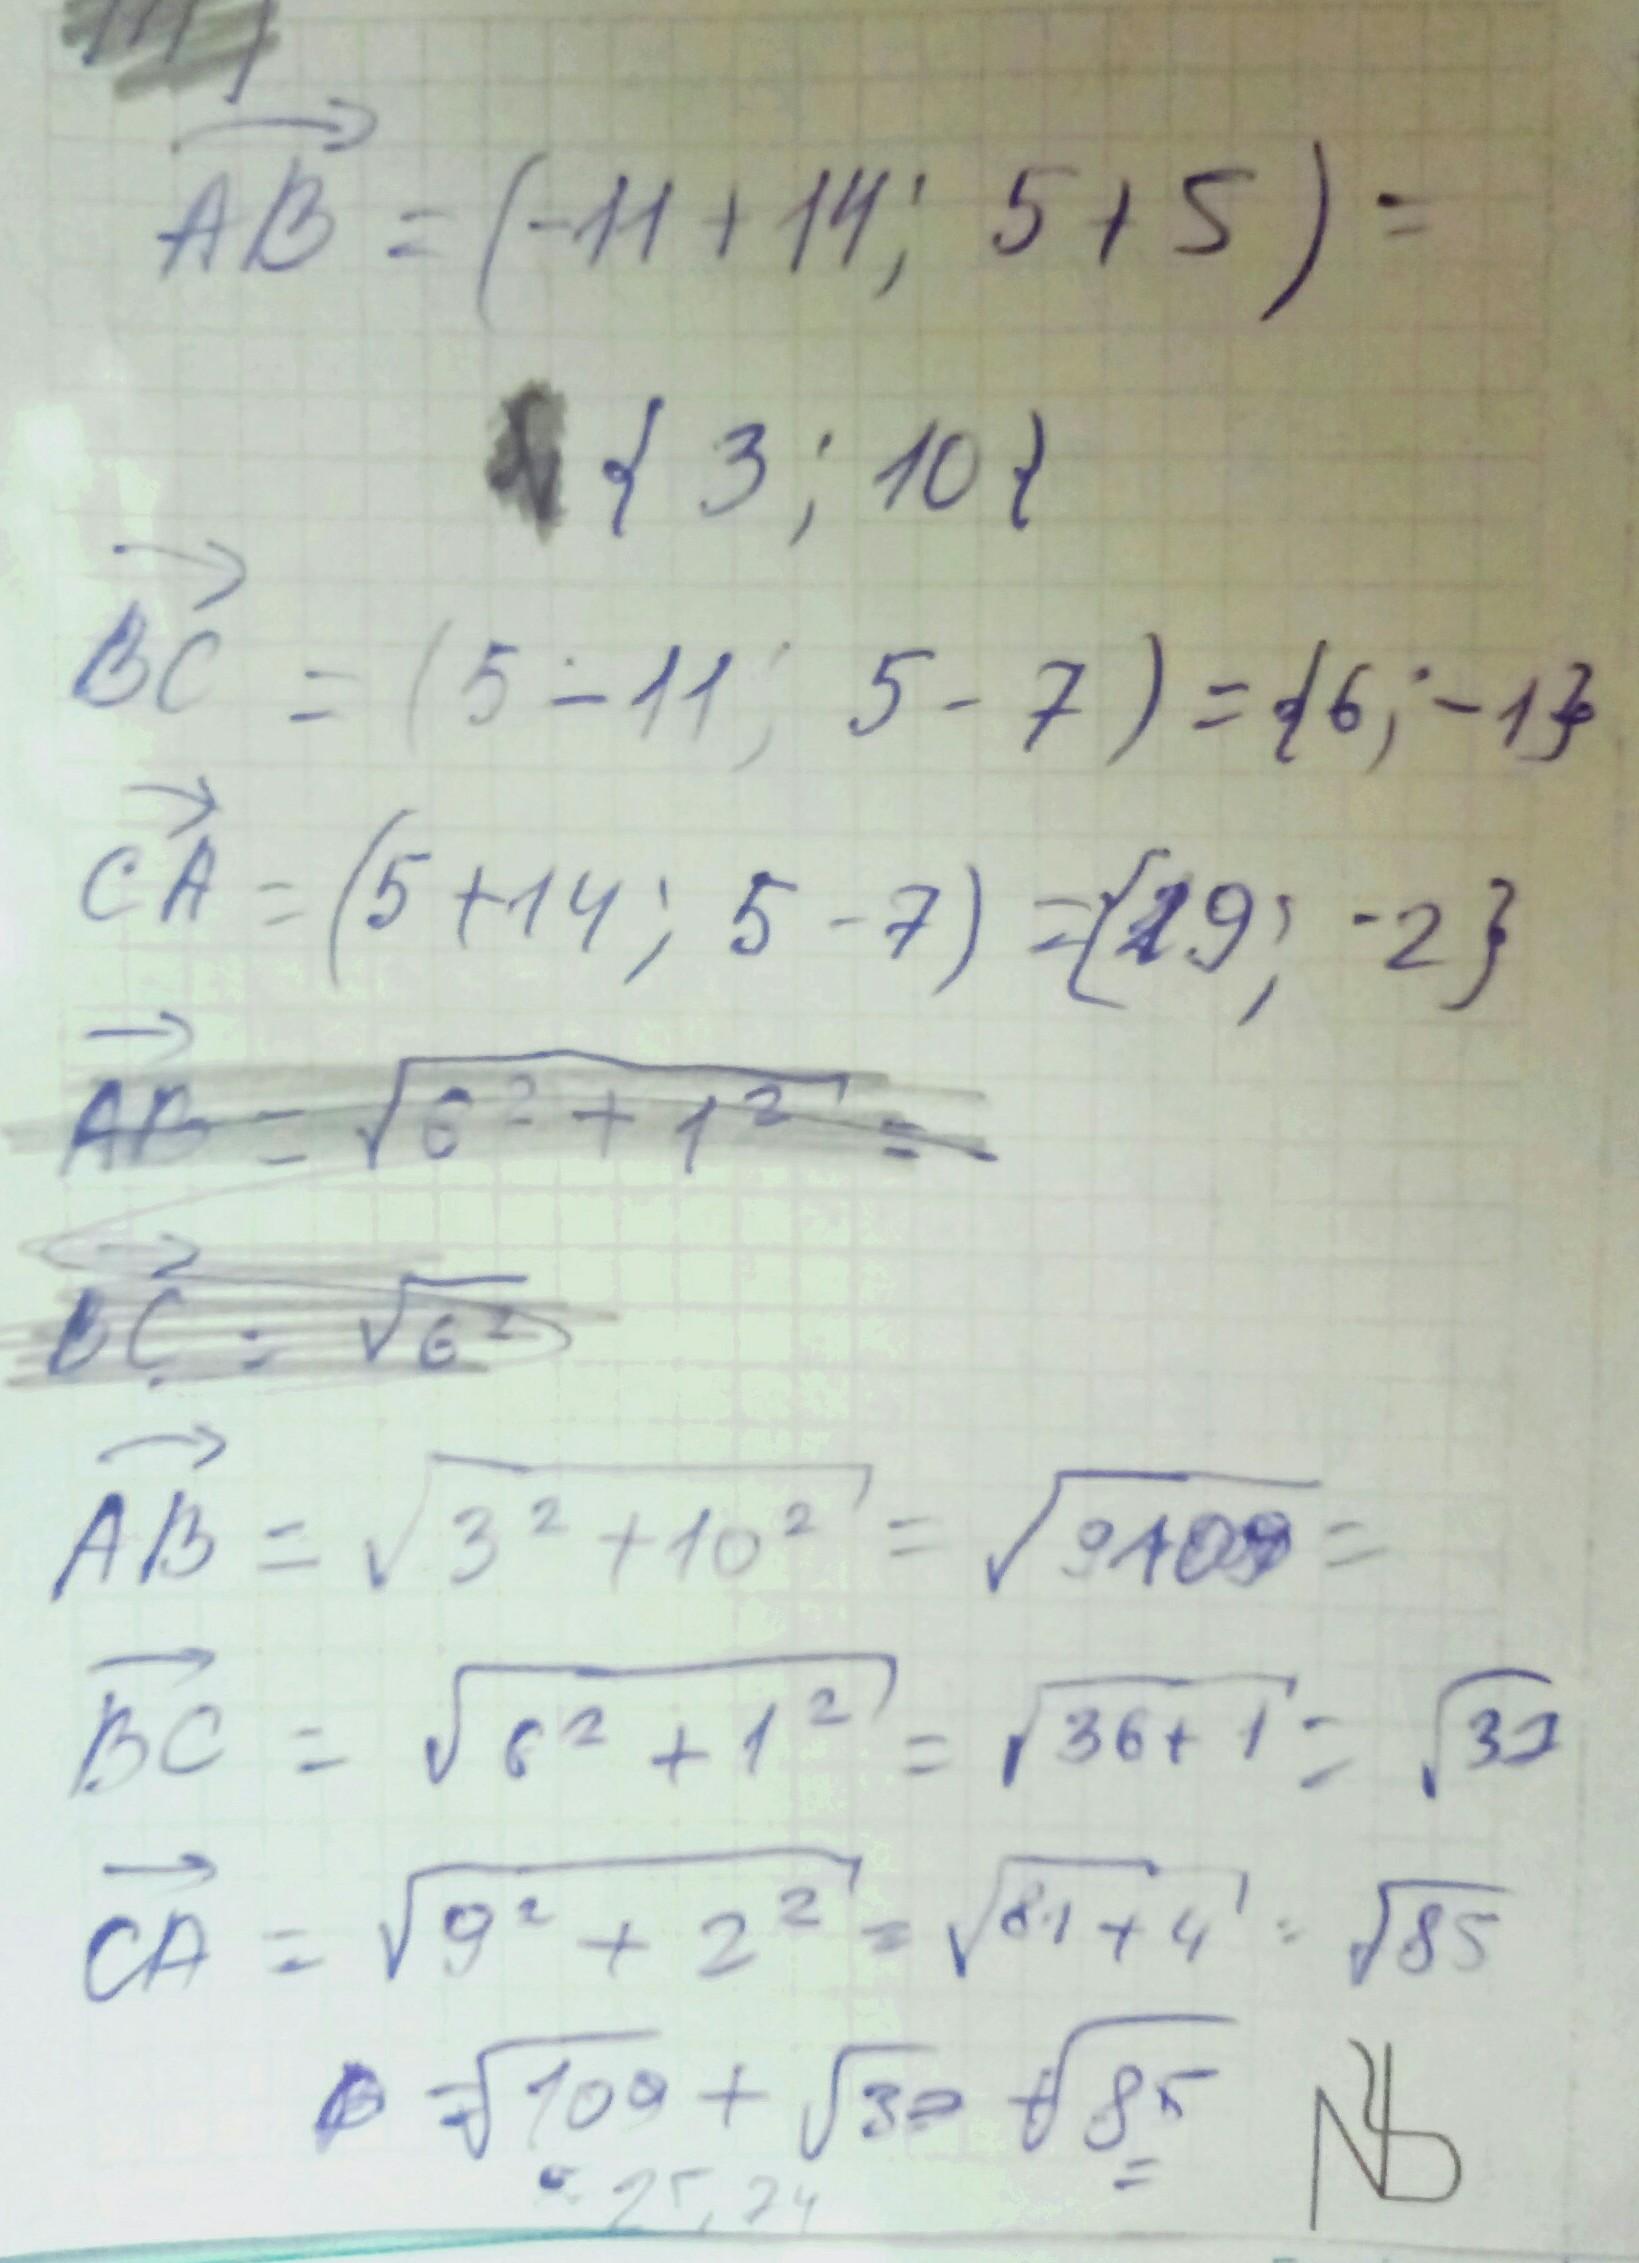 AB = (-11+14; 5+5) =
{3; 10}
BC = (5-11; 5-7) = {6; -1}
CA = (5+14; 5-7) = {19; -2}
AB = √6² + 1² =
BC = √6²
AB = √3² + 10² = √9109 =
BC = √6² + 1² = √36+1 = √37
CA = √9² + 2² = √81+4 = √85
P = √109 + √37 + √85 =
= 25,24